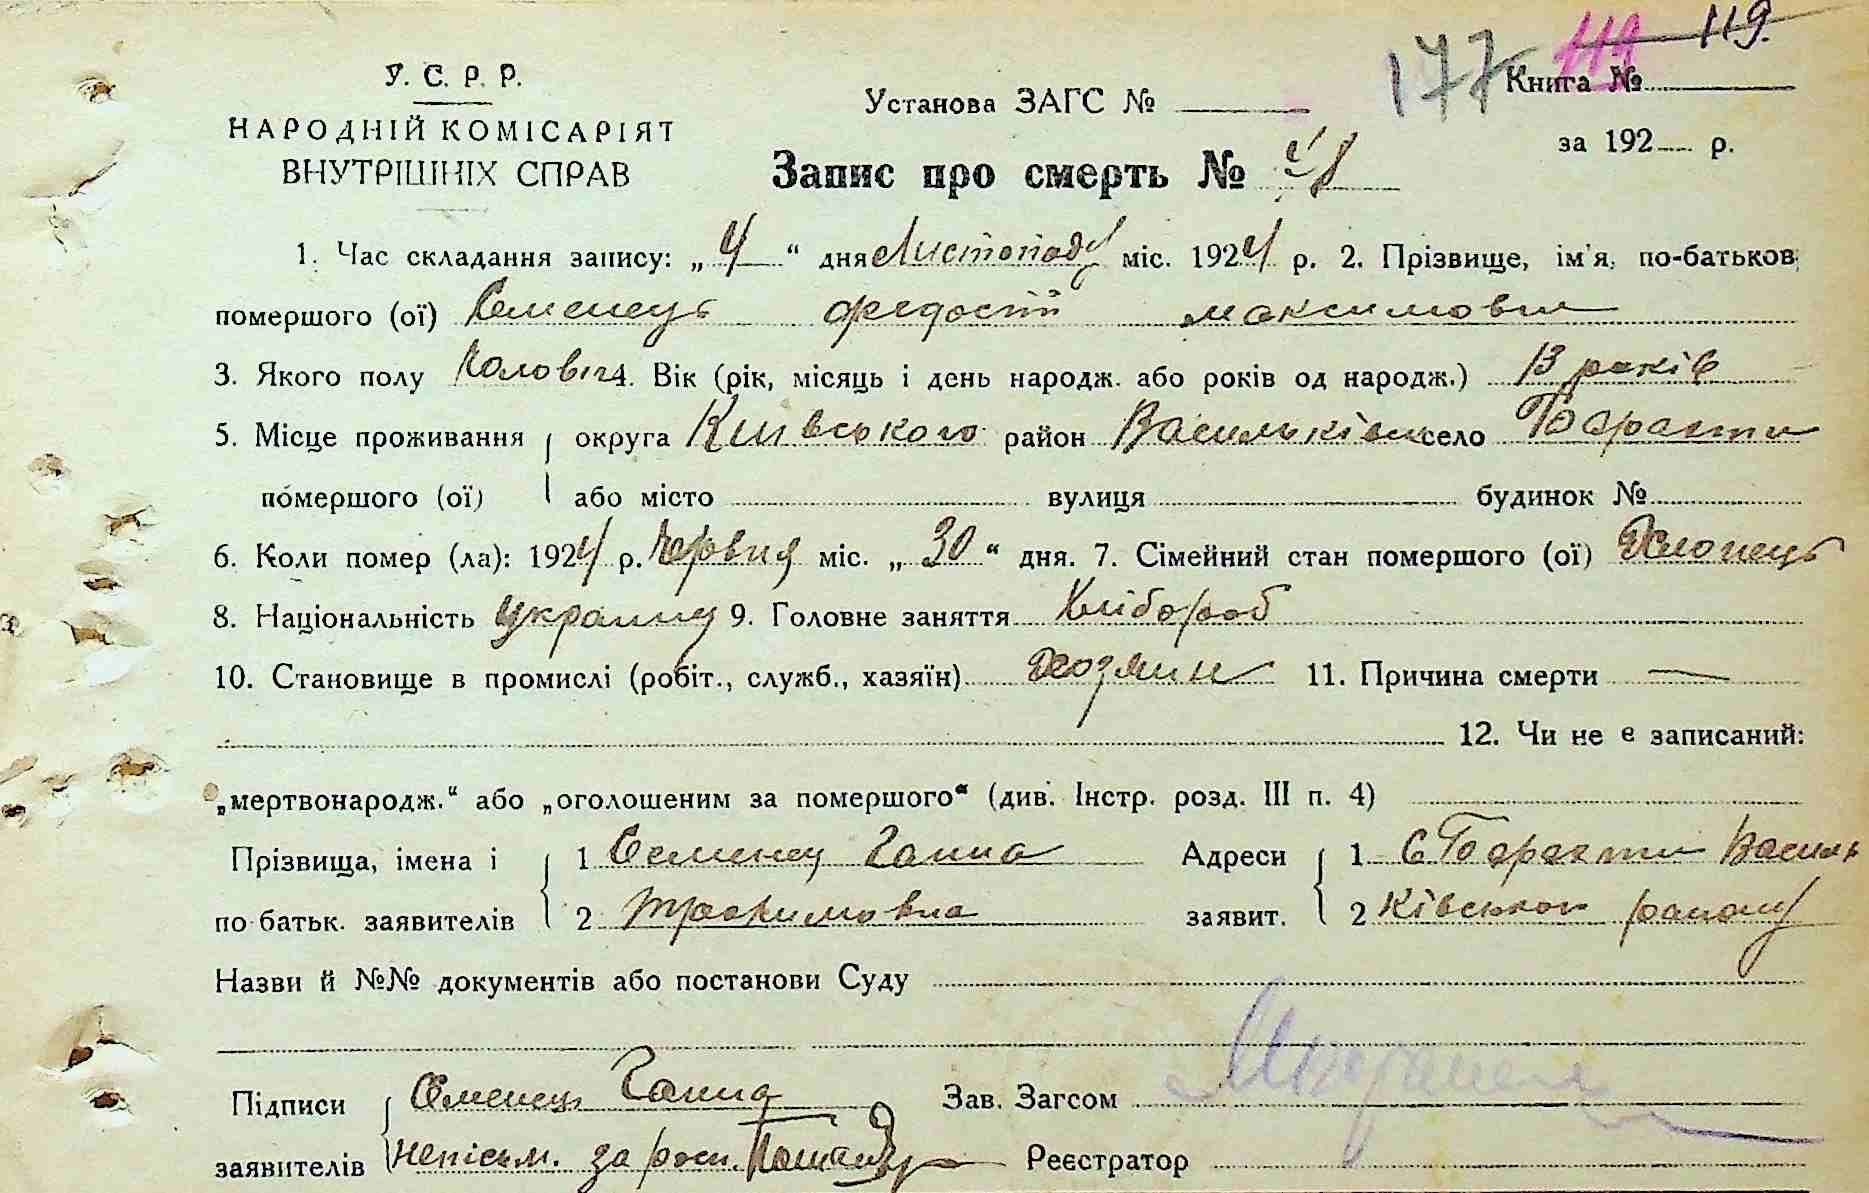 119.
177 119 Книга №
У. С. Р. Р.
НАРОДНІЙ КОМІСАРІЯТ
ВНУТРІШНІХ СПРАВ
Установа ЗАГС №
за 192 р.
Запис про смерть №
1. Час складання запису: „ 4 “ дня Листопаду міс. 1924 р. 2. Прізвище, ім'я, по-батькові
помершого (ої) Семенець Федосій Максимович
3. Якого полу Чоловіч 4. Вік (рік, місяць і день народж. або років од народж.) 13 років
5. Місце проживання округа Київського район Васильківськ село Барахти
помершого (ої) або місто вулиця будинок №
6. Коли помер (ла): 1924 р. Червня міс. „ 30 “ дня. 7. Сімейний стан помершого (ої) Хлопець
8. Національність україну 9. Головне заняття Хлібороб
10. Становище в промислі (робіт., служб., хазяїн) Хозяин 11. Причина смерти —
12. Чи не є записаний:
„мертвонародж.“ або „оголошеним за помершого“ (див. Інстр. розд. III п. 4)
Прізвища, імена і 1 Семенец Ганна Адреси 1 С Барахти Василь
по-батьк. заявителів 2 Трохимовна заявит. 2 ківського району
Назви й №№ документів або постанови Суду
Підписи Семенець Ганна Зав. Загсом
заявителів непісьм. за росп. Реєстратор